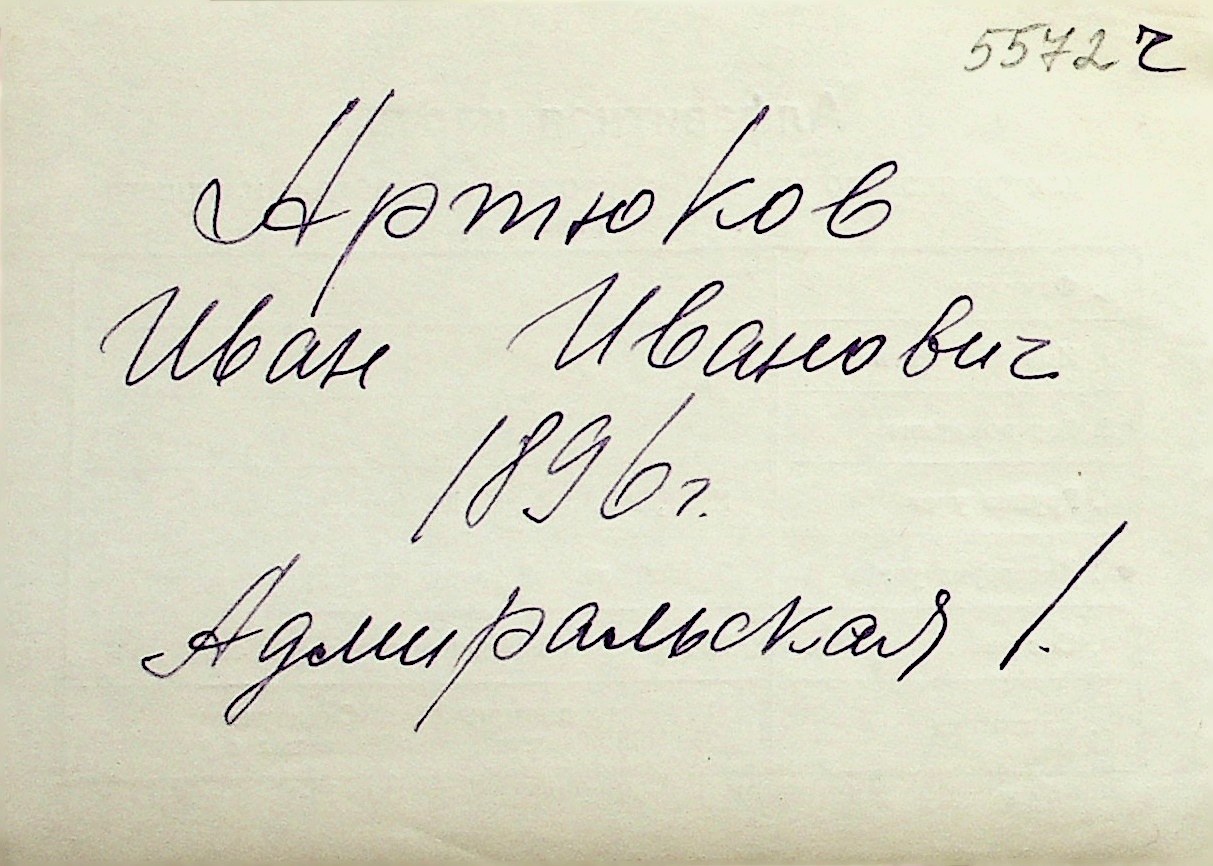 5572 г
Артюков
Иван Иванович
1896 г.
Адмиральская 1.